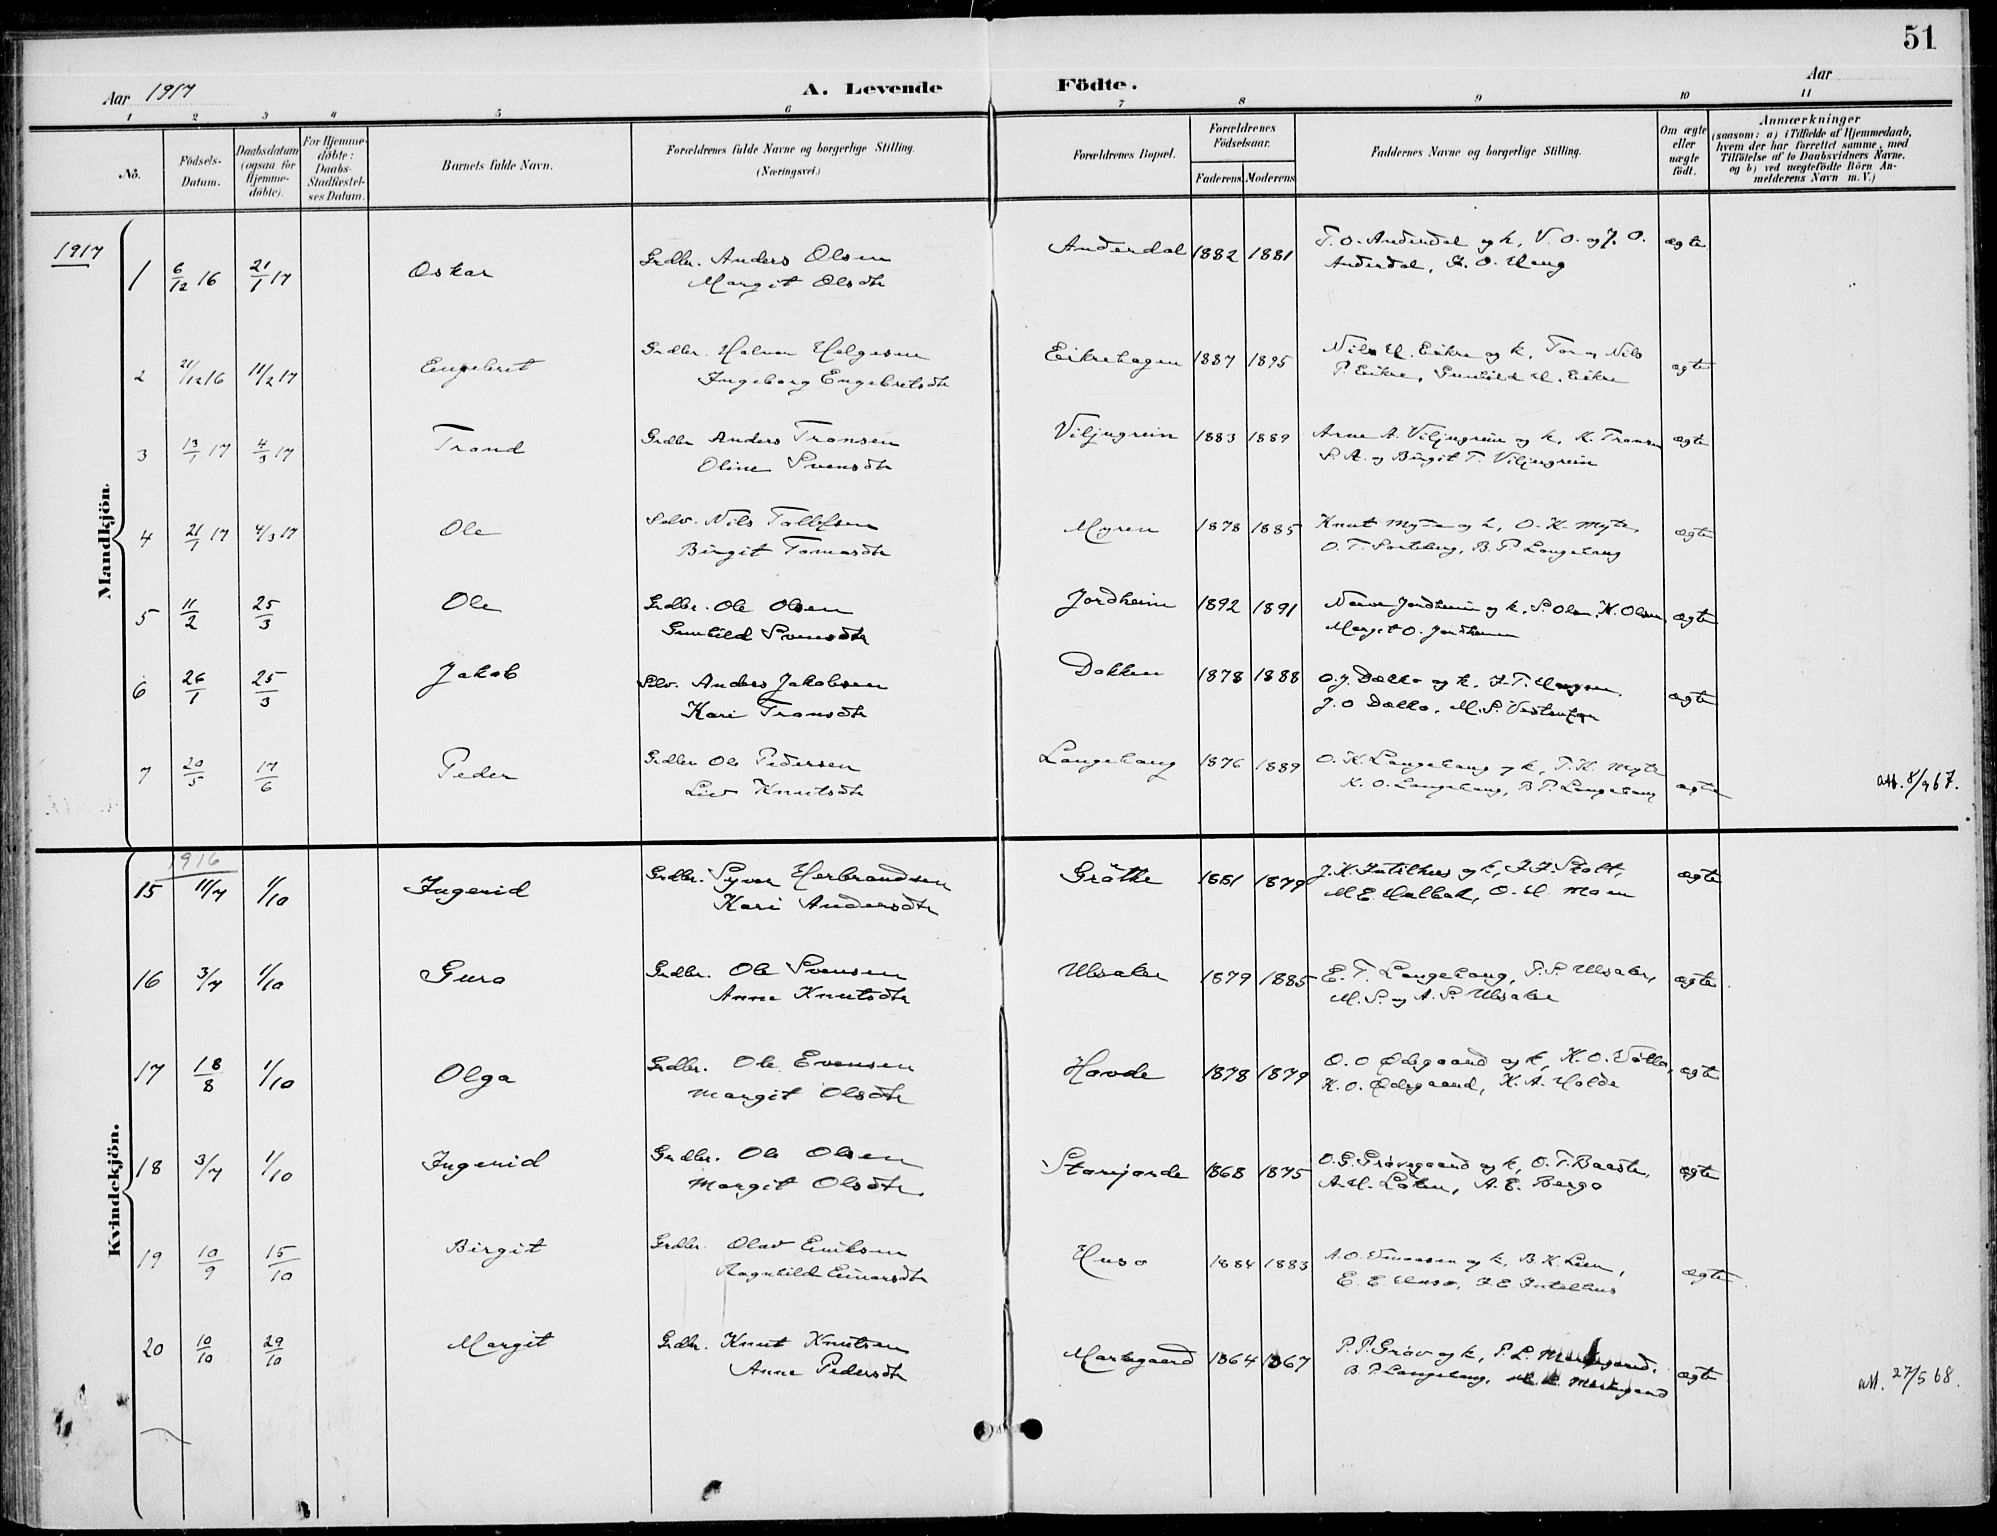 51
Aar 1917 A. Levende Födte. Aar
1 2 3 4 5 6 7 8 9 10 11
No.
Födsels-Datum.
Daabsdatum (ogsaa for Hjemmedöbte).
For Hjemmedöbte: Daabs-Stadfæstelses Datum.
Barnets fulde Navn.
Forældrenes fulde Navne og borgerlige Stilling.
(Næringsvei.)
Forældrenes Bopæl.
Forældrenes Födselsaar.
Faderens. Moderens.
Faddernes Navne og borgerlige Stilling.
Om ægte eller uægte födt.
Anmærkninger
(saasom: a) i Tilfælde af Hjemmedaab, hvem der har forrettet samme, med Tilföielse af to Daabsvidners Navne, og b) ved uægtefödte Börn Anmelderens Navn m. V.)
Mandkjön.
1917
1 6/12 16 21/1 17 Oskar Grdbr. Anders Olsen Anderdal 1882 1881 T. O. Anderdal og k, V. O. og J. O. ægte
Margit Olsdtr Anderdal, O. Haug
2 21/12 16 11/2 17 Engebret Grdbr. Halvor Helgesen Eikrehagen 1887 1895 Nils H. Eikre og k, Tor og Nils ægte
Ingeborg Engebretsdtr P. Eikre, Gunhild H. Eikre
3 13/1 17 4/3 17 Trond Grdbr Anders Tronsen Viljugrein 1883 1889 Arne A. Viljugrein og k, K. Tronsen ægte
Oline Svensdtr S. A. og Birgit T. Viljugrein
4 21/1 17 4/3 17 Ole Selv. Nils Tollefsen Myren 1878 1885 Knut Myten og k, O. K. Myte, ægte
Birgit Tomasdtr O. T. Sorteberg, B. P. Langehaug
5 11/2 25/3 Ole Grdbr. Ole Olsen Jordheim 1892 1891 Jordheim og k, S. Olsen, K. Olsen, ægte
Gunhild Svensdtr Margit O. Jordheim
6 26/1 25/3 Jakob Selv. Anders Jakobsen Dokken 1878 1888 O. J. Dokko og k, ægte
Kari Tronsdtr J. O Dokko, M. S.
7 20/5 17/6 Peder Grdbr Ole Pedersen Langehaug 1876 1889 O. K. Langehaug og k, T. K. Myte ægte att. 8/9 67.
Liv Knutsdtr K. O. Langehaug, B P. Langehaug
Kvindekjön.
1916
15 11/7 1/10 Ingerid Grdbr. Syver Herbrandsen Gröthe 1881 1879 J. K. Intelhus og k, Stolt, ægte
Kari Andersdtr M E. Halbak, O. H. Moen
16 3/7 1/10 Guro Grdbr. Ole Svensen Ulsaker 1879 1885 E. T. Langehaug, S. S. Ulsaker, ægte
Anne Knutsdtr M. S. og A. S. Ulsaker
17 18/8 1/10 Olga Grdbr. Ole Evensen Hovde 1878 1879 O. O Ødegaard og k, K. O. ægte
Margit Olsdtr K. O. Ødegaard, K. A. Holde
18 3/7 1/10 Ingerid Grdbr. Ole Olsen Storejorde 1868 1875 O. G. Grøvegaard og k, O. T. ægte
Margit Olsdtr. A. H. Løken, A. E. Bergo
19 10/9 15/10 Birgit Grdbr. Olav Eriksen Huso 1884 1883 A. O. og k, B. K. Lien, ægte
Ragnhild Einarsdtr E. E Huso, Intelhus
20 10/10 29/10 Margit Grdbr. Knut Knutsen Markegaard 1864 1867 P. P. Grøv og k, P. L. Markegaard, ægte att. 27/5 68.
Anne Pedersdtr B. P. Langehaug, Markegaard